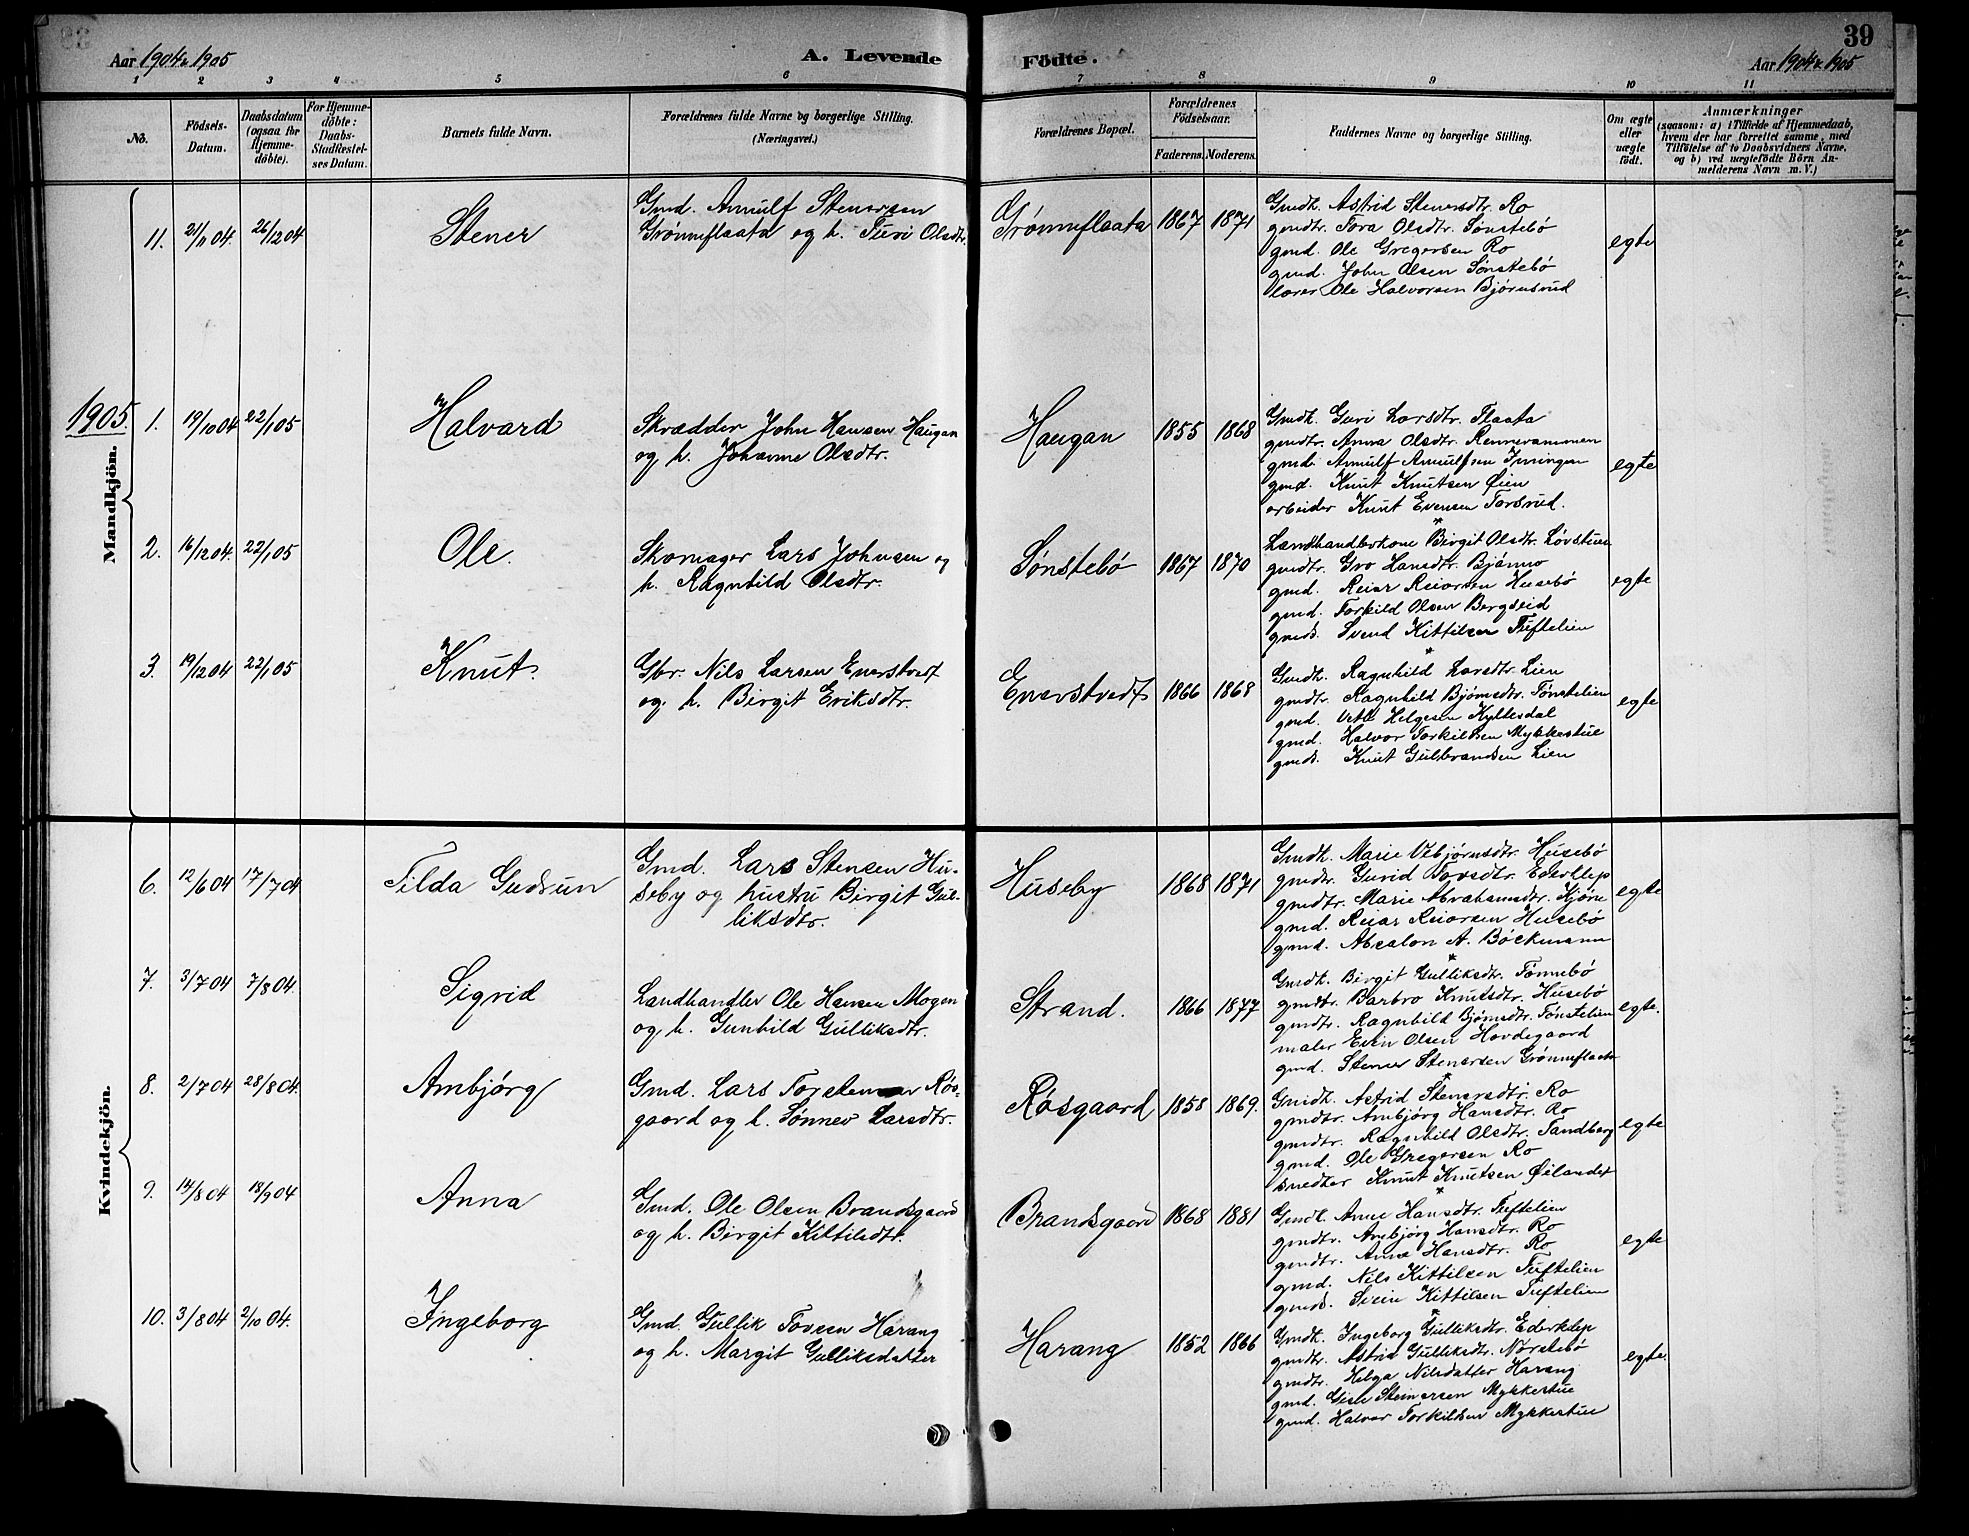 39
Aar 1904 & 1905
A. Levende Födte.
Aar 1904 & 1905
1 2 3 4 5 6 7 8 9 10 11
No.
Födsels-Datum.
Daabsdatum (ogsaa for Hjemmedöbte).
For Hjemmedöbte: Daabs-Stadfæstelses Datum.
Barnets fulde Navn.
Forældrenes fulde Navne og borgerlige Stilling. (Næringsvei.)
Forældrenes Bopæl.
Forældrenes Födselsaar.
Faderens. Moderens.
Faddernes Navne og borgerlige Stilling.
Om ægte eller uægte födt.
Anmærkninger
(saasom: a) i Tilfælde af Hjemmedaab, hvem der har forrettet samme, med Tilföielse af to Daabsvidners Navne, og b) ved uægtefödte Börn Anmelderens Navn m. V.)
Mandkjön.
11. 21/11 04 26/12 04 Stener
Gmd. Arnulf Stenersen
Grønneflaata og h. Turi Olsdtr.
Grønneflaata 1867 1871
Gmdk. Astrid Stenersdtr. Ro
gmdtr. Tora Olsdtr. Sønstebö
gmd. Ole Gregersen Ro
gmd. John Olsen Sønstebö
lærer Ole Halvorsen Bjørnsrud
egte
1905.
1. 19/10 04 22/1 05 Halvard
Skrædder John Hansen Haugan
og h. Johanne Olsdtr.
Haugan 1855 1868
Gmdk. Guri Larsdtr. Flaata
gmdtr. Anna Olsdtr. Rennevammen
gmd. Arnulf Arnulfsen Irringen
gmd. Knut Knutsen Øien
arbeider Knut Evensen Forsrud.
egte
2. 16/12 04. 22/1 05 Ole.
Skomager Lars Johnsen og
h. Ragnhild Olsdtr.
Sønstebö 1867 1870
Landhandlerkone Birgit Olsdtr. Løvstuen
gmdtr. Gro Hansdtr. Bjänno
gmd. Reiar Reiarsen Husebö
gmd. Torkild Olsen Bergseid
gmds. Svend Kittilsen Tuftelien
egte
3. 19/12 04 22/1 05 Knut.
Gbr. Nils Larsen Enerstvedt
og h. Birgit Eriksdtr.
Enerstvedt 1866 1868
Gmdk. Ragnhild Larsdtr. Lien
gmdtr. Ragnhild Bjørnsdtr. Tønstelien
gmd. Vetle Helgesen Kyllesdal
gmd. Halvor Torkilsen Mykkestue
gmds. Knut Gulbrandsen Lien
egte
Kvindekjön.
6. 12/6 04 17/7 04 Tilda Gudrun
Gmd. Lars Stensen Hu-
seby og hustru Birgit Gul-
liksdtr.
Huseby 1868 1871
Gmdk. Marie Vebjørnsdtr. Husebö
gmdtr. Gurid Tovsdtr. Ederklep
gmdtr. Marie Abrahamsdtr. Kjörn
gmd. Reiar Reiarsen Husebö
gmd. Absalon A. Böckmann
egte
7. 3/7 04 7/8 04. Sigrid
Landhandler Ole Hansen Mogen
og h. Gunhild Gulliksdtr.
Strand. 1866 1877
Gmdk. Birgit Gulliksdtr. Tönnebö
gmdtr. Barbro Knutsdtr. Husebö
gmdtr. Ragnhild Bjørnsdtr. Tønstelien
maler Even Olsen Hovdegaard
gmd. Stener Stenersen Grønneflaata
egte.
8. 2/7 04 28/8 04. Arnbjørg
Gmd. Lars Torstensen Røs-
gaard og h. Sønnev Larsdtr.
Røsgaard 1858 1869.
Gmdk. Astrid Stenersdtr. Ro
gmdtr. Arnbjørg Hansdtr. Ro
gmdtr. Ragnhild Olsdtr. Sandberg
gmd. Ole Gregersen Ro
snedker Knut Knutsen Øilandet
egte
9. 14/8 04 18/9 04 Anna
Gmd. Ole Olsen Brandsgaard
og h. Birgit Kittilsdtr.
Brandsgaard 1868 1881
Gmdk. Anne Hansdtr. Tuftelien
gmdtr. Arnbjørg Hansdtr. Ro
gmdtr. Anne Hansdtr. Ro
gmd. Nils Kittilsen Tuftelien
gmds. Svein Kittilsen Tuftelien
egte
10. 3/8 04 2/10 04. Ingeborg
Gmd. Gullik Tovsen Harang
og h. Margit Gulliksdatter
Harang 1852 1866
Gmdk. Ingeborg Gulliksdtr. Ederklep
gmdtr. Astrid Gulliksdtr. Nørstebö
gmdtr. Helga Nilsdatter Harang
gmd. Gisle Steinarsen Mykkestue
gmd. Halvor Torkildsen Mykkestue
egte.